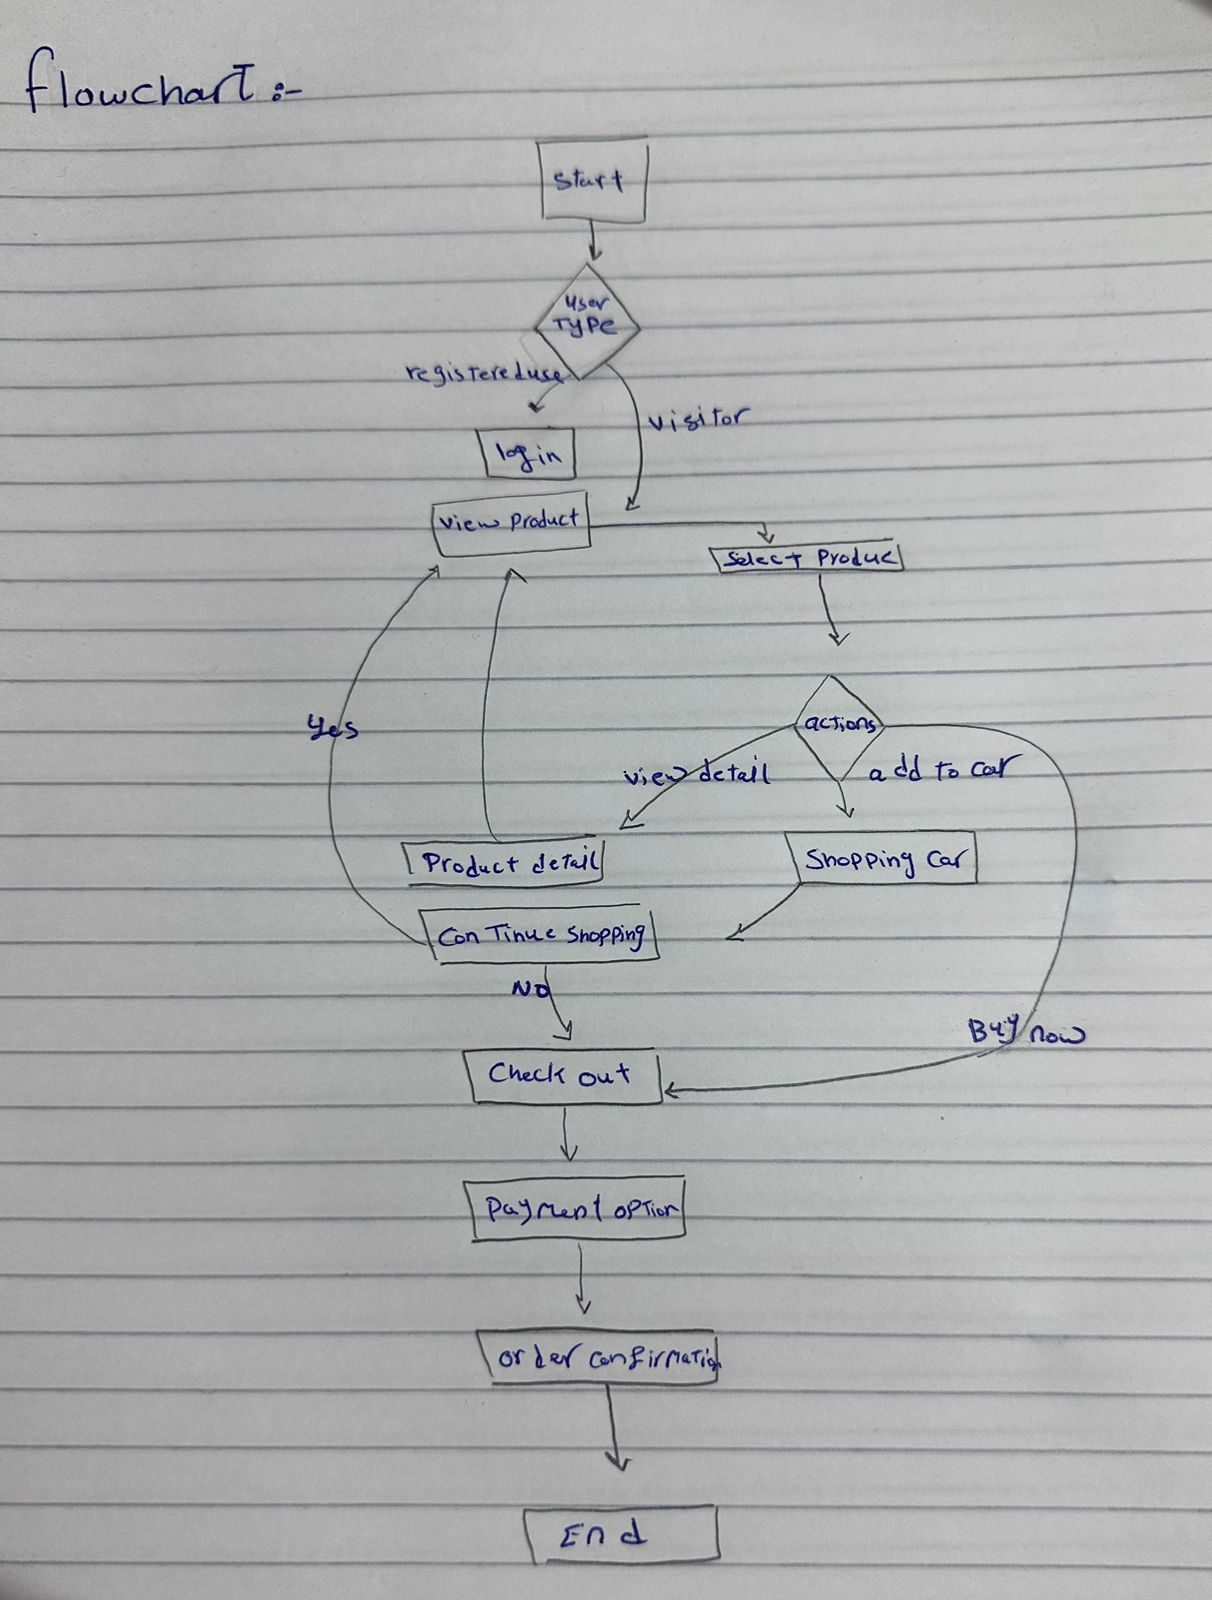 flowchart :-
Start
User
Type
registereduse
visitor
login
view product
Select Produc
Yes
actions
view detail
add to car
Product detail
Shopping Car
Con Tinue Shopping
No
Buy now
Check out
Payment option
order confirmation
End